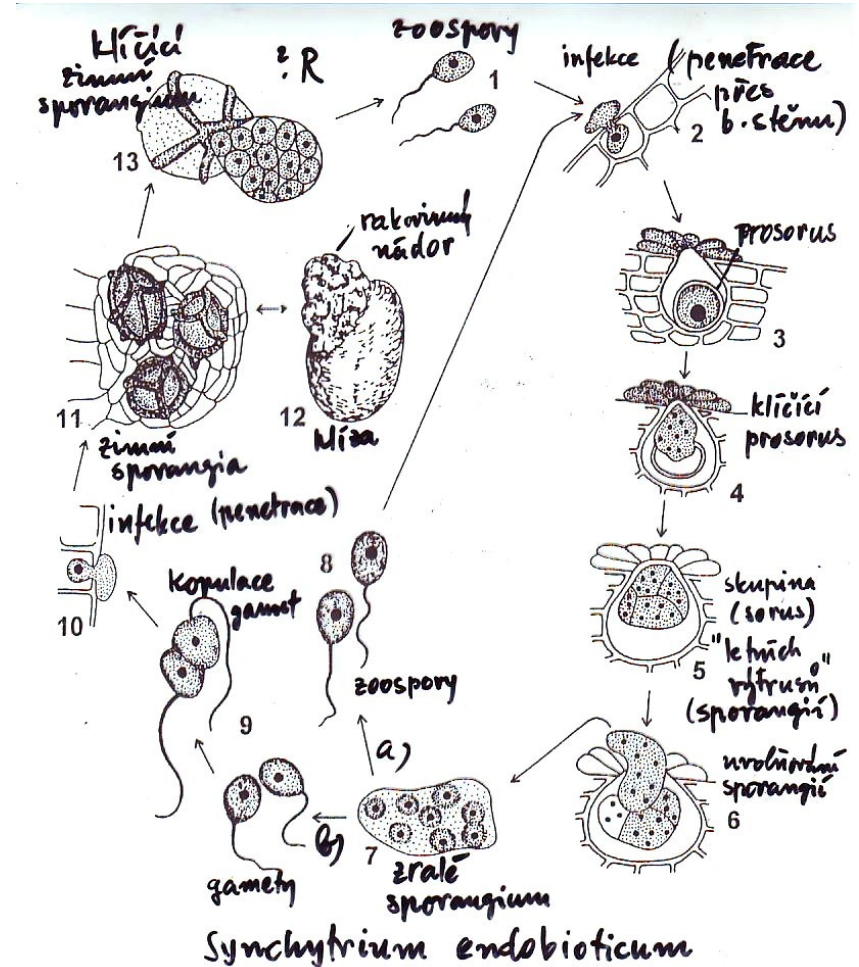 klíčící
zimní
sporangium
?R
13
zoospory
1
infekce (penetrace
přes
b. stěnu)
2
prosorus
3
klíčící
prosorus
4
skupina
(sorus)
"letních
výtrusů"
(sporangií)
5
uvolňování
sporangií
6
zralé
sporangium
7
a)
b)
zoospory
8
gamety
kopulace
gamet
9
infekce (penetrace)
10
zimní
sporangia
11
rakovinný
nádor
12
hlíza
Synchytrium endobioticum